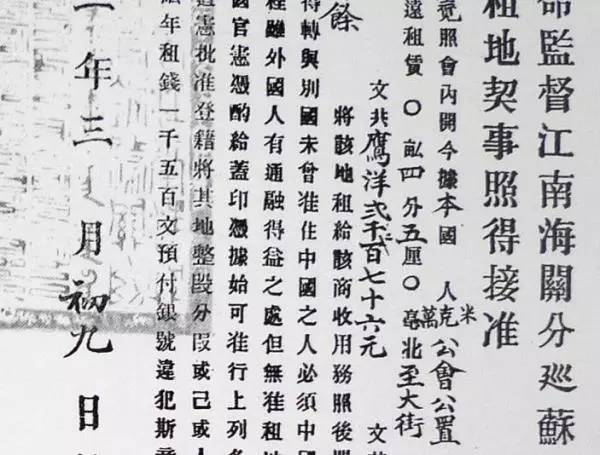 命監督江南海關分巡蘇
租地契事照得接准
照會內開今據本國 人米克萬公會公置
遠租賃〇畝四分五厘〇毫北至大街
文共鷹洋弍千百七十六元 文
餘
將該地租給該商收用務照後
得轉與別國未曾准住中國之人必須中
程雖外國人有通融得益之處但無准租地
國官憲憑酌給蓋印憑據始可准行上列各
憲批准登籍將其地整段分段或己或人
年租錢一千五百文預付銀號違犯斯
年三月初九日